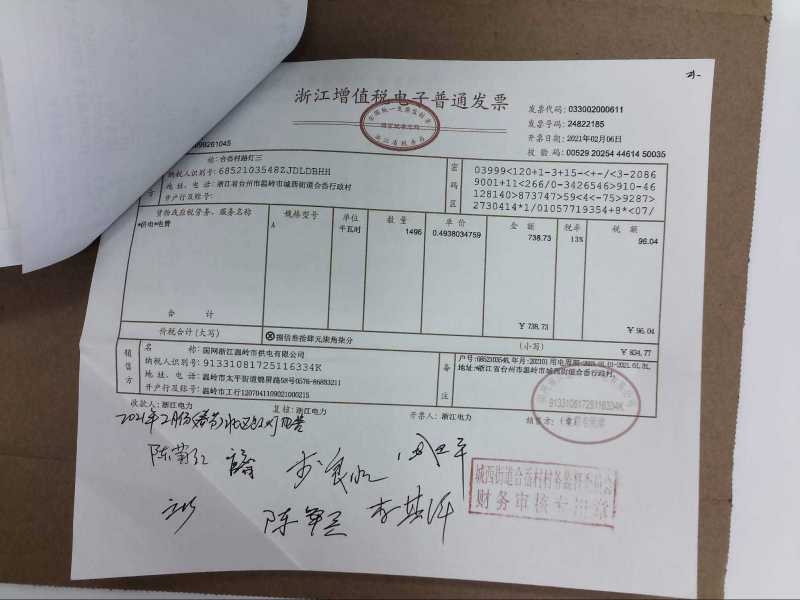 浙江增值税电子普通发票
发票代码: 033002000611
发票号码: 24822185
开票日期: 2021年02月06日
校 验 码: 00529 20254 44614 50035
99261045
名 称: 合岙村路灯三
纳税人识别号: 68521035482JDLDBHH
地 址、电 话: 浙江省台州市温岭市城西街道合岙行政村
开户行及账号:
密码区
03999<120+1-3+15-<+-/<3-2086
9001+11<266/0-3426546>910-46
128140>873747>59<4<-75>9287>
2730414*1/01057719354+8*<07/
货物或应税劳务、服务名称 规格型号 单位 数量 单价 金额 税率 税额
*供电*电费 A 千瓦时 1496 0.4938034759 738.73 13% 96.04
合 计 ￥738.73 ￥96.04
价税合计(大写) ⊗捌佰叁拾肆元柒角柒分 (小写) ￥834.77
销售方
名 称: 国网浙江温岭市供电有限公司
纳税人识别号: 91331081725116334K
地 址、电 话: 温岭市太平街道锦屏路58号0576-86893211
开户行及账号: 温岭市工行1207041109021000215
备注
地址:浙江省台州市温岭市城西街道合岙行政村。
收款人: 浙江电力 复核: 浙江电力 开票人: 浙江电力 销售方: (章)
91331081725116334K
2021年2月份(春节)
陈菊红
城西街道合岙村村务监督委员会
财务审核专用章